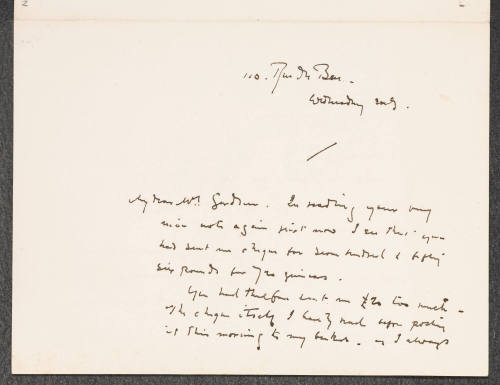 110. Rue du Bac.
Wednesday
My dear Mrs Gardner. In reading your very
nice note again just now I see that you
had sent me cheque for seven hundred & fifty
six pounds for 720 guineas.
You had therefore sent me £20 too much -
the cheque itself I hardly upon posting
it this morning to my banker. as I always